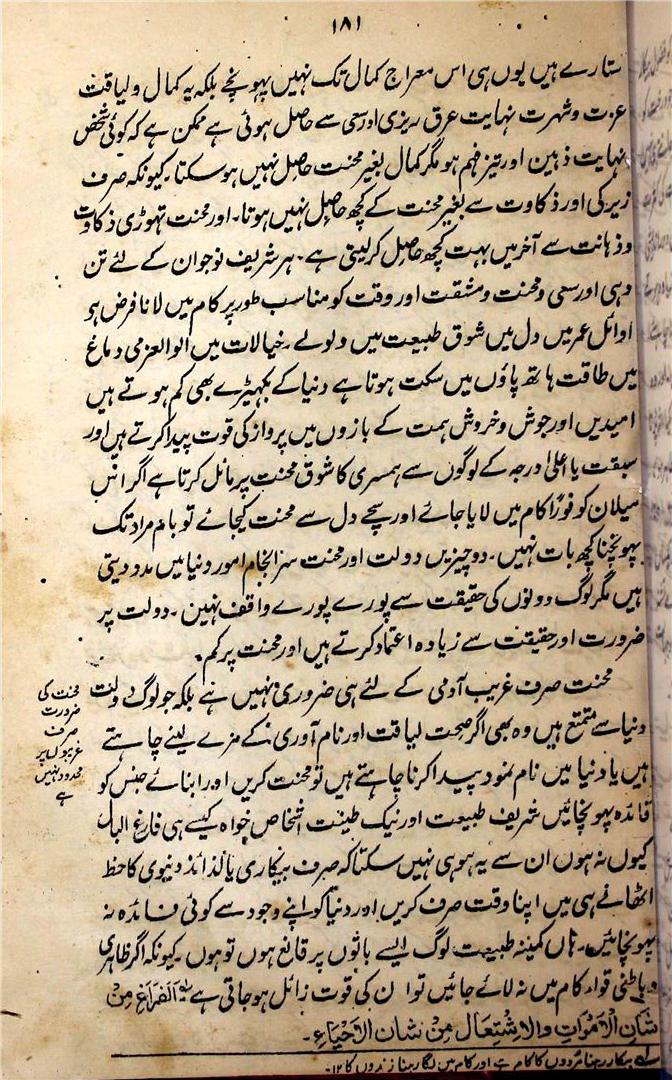 ۱۸۱
ستارے ہیں یوں ہی اس معراج کمال تک نہیں پہونچے بلکہ یہ کمال و لیاقت
عزت و شہرت نہایت عرق ریزی اور سعی سے حاصل ہوئی ہے ممکن ہے کہ کوئی شخص
نہایت ذہین اور تیز فہم ہو مگر کمال بغیر محنت حاصل نہیں ہوسکتا۔ کیونکہ صرف
زیرکی اور ذکاوت سے بغیر محنت کے کچھ حاصل نہیں ہوتا۔ اور محنت تہوڑی ذکاوت
و ذہانت سے آخر میں بہت کچھ حاصل کرلیتی ہے۔ ہر شریف نوجوان کے لئے تن
دہی اور سعی و محنت و مشقت اور وقت کو مناسب طور پر کام میں لانا فرض ہو
اوائل عمر میں دل میں شوق طبیعت میں ولولے۔ خیالات میں الوالعزمی دماغ
میں طاقت ہاتھ پاؤں میں سکت ہوتا ہے دنیا کے بکہیڑے بھی کم ہوتے ہیں
امیدیں اور جوش و خروش ہمت کے بازوں میں پرواز کی قوت پیدا کرتے ہیں اور
سبقت یا اعلیٰ درجہ کے لوگوں سے ہمسری کا شوق محنت پر مائل کرتا ہے اگر اس
میلان کو فوراً کام میں لایا جائے اور سچے دل سے محنت کیجائے تو بام مراد تک
پہونچنا کچھ بات نہیں۔ دو چیزیں دولت اور محنت سرانجام امور دنیا میں مدد دیتی
ہیں مگر لوگ دونوں کی حقیقت سے پورے پورے واقف نہین۔ دولت پر
ضرورت اور حقیقت سے زیادہ اعتماد کرتے ہیں اور محنت پر کم۔
محنت صرف غریب آدمی کے لئے ہی ضروری نہیں ہے بلکہ جو لوگ دولت
دنیا سے متمتع ہیں وہ بھی اگر صحت لیاقت اور نام آوری کے مزے لینے چاہتے
ہیں یا دنیا میں نام نمود پیدا کرنا چاہتے ہیں تو محنت کریں اور ابنائے جنس کو
فائدہ پہونچائیں شریف طبیعت اور نیک طینت اشخاص خواہ کیسے ہی فارغ البال
کیوں نہ ہوں ان سے یہ ہو ہی نہیں سکتا کہ صرف بیکاری یا لذائذ دنیوی کا حظ
اٹھانے ہی میں اپنا وقت صرف کریں اور دنیا کو اپنے وجود سے کوئی فائدہ نہ
پہونچائیں۔ ہاں کمینہ طبیعت لوگ ایسے باتوں پر قانع ہوں تو ہوں۔ کیونکہ اگر ظاہری
و باطنی قواء کام میں نہ لائے جائیں تو ان کی قوت زائل ہوجاتی ہے اَلفَرَاغ مِنْ
شَانِ الْاَمْوَاتِ وَالاِشْتِغَال مِنْ شَانِ الاَحْیَاءِ۔
محنت کی
ضرورت
صرف
غریبوں پر
محدود نہیں
ہے
لے بیکار رہنا مُردوں کا کام ہے اور کام میں لگا رہنا زندوں کا ۱۲۔